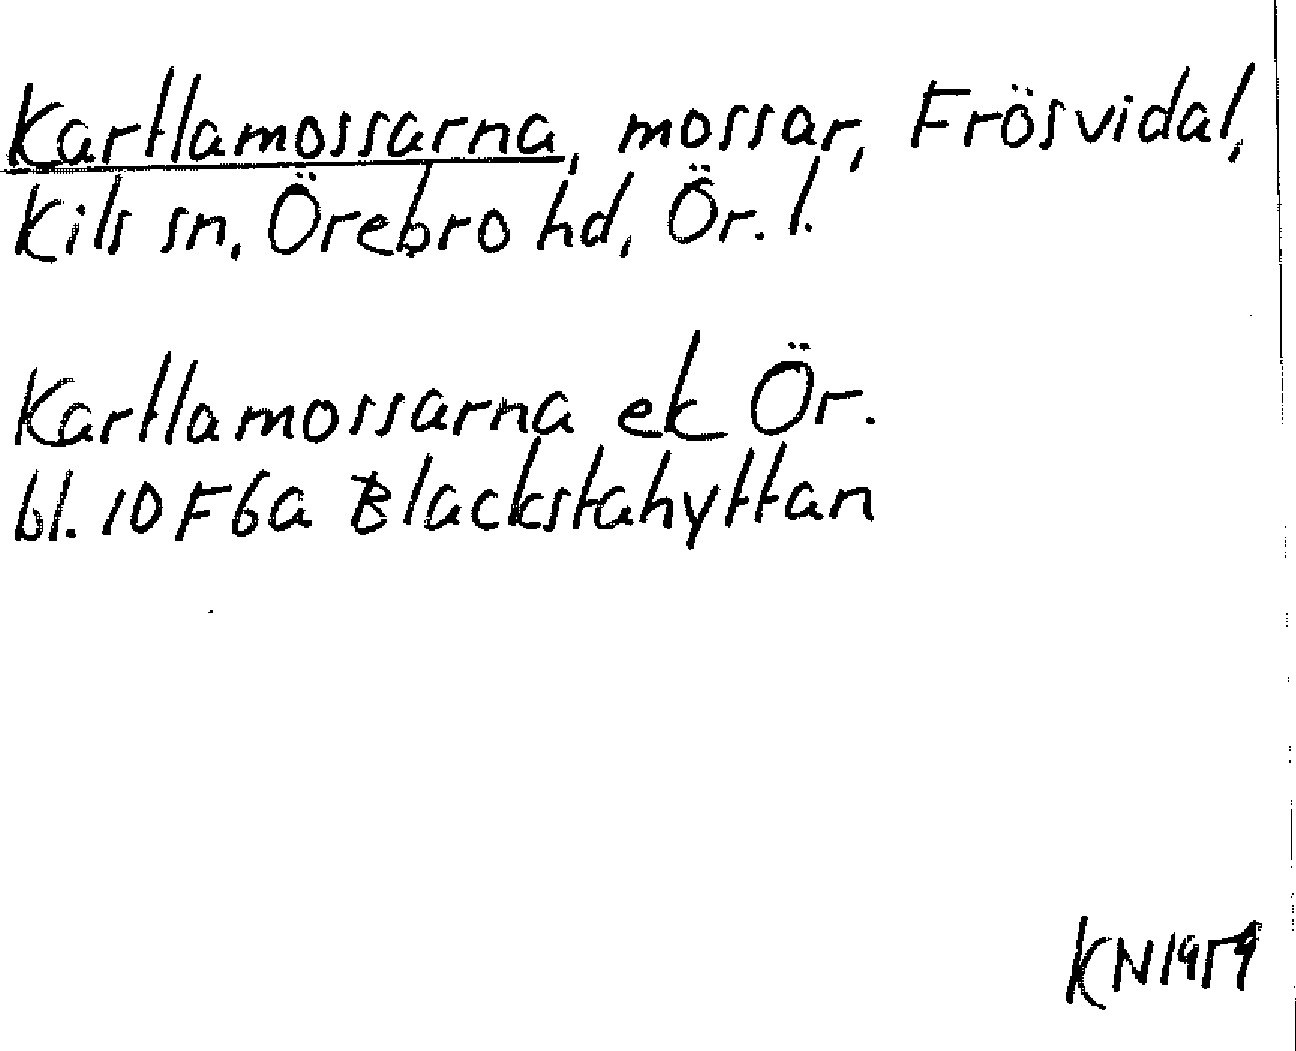 Kartlamossarna, mossar, Frösvidal,
Kils sn, Örebro hd, Ör. l.
Kartlamossarna ek Ör.
bl. 10 F 6a Blackstahyttan
KN 1959